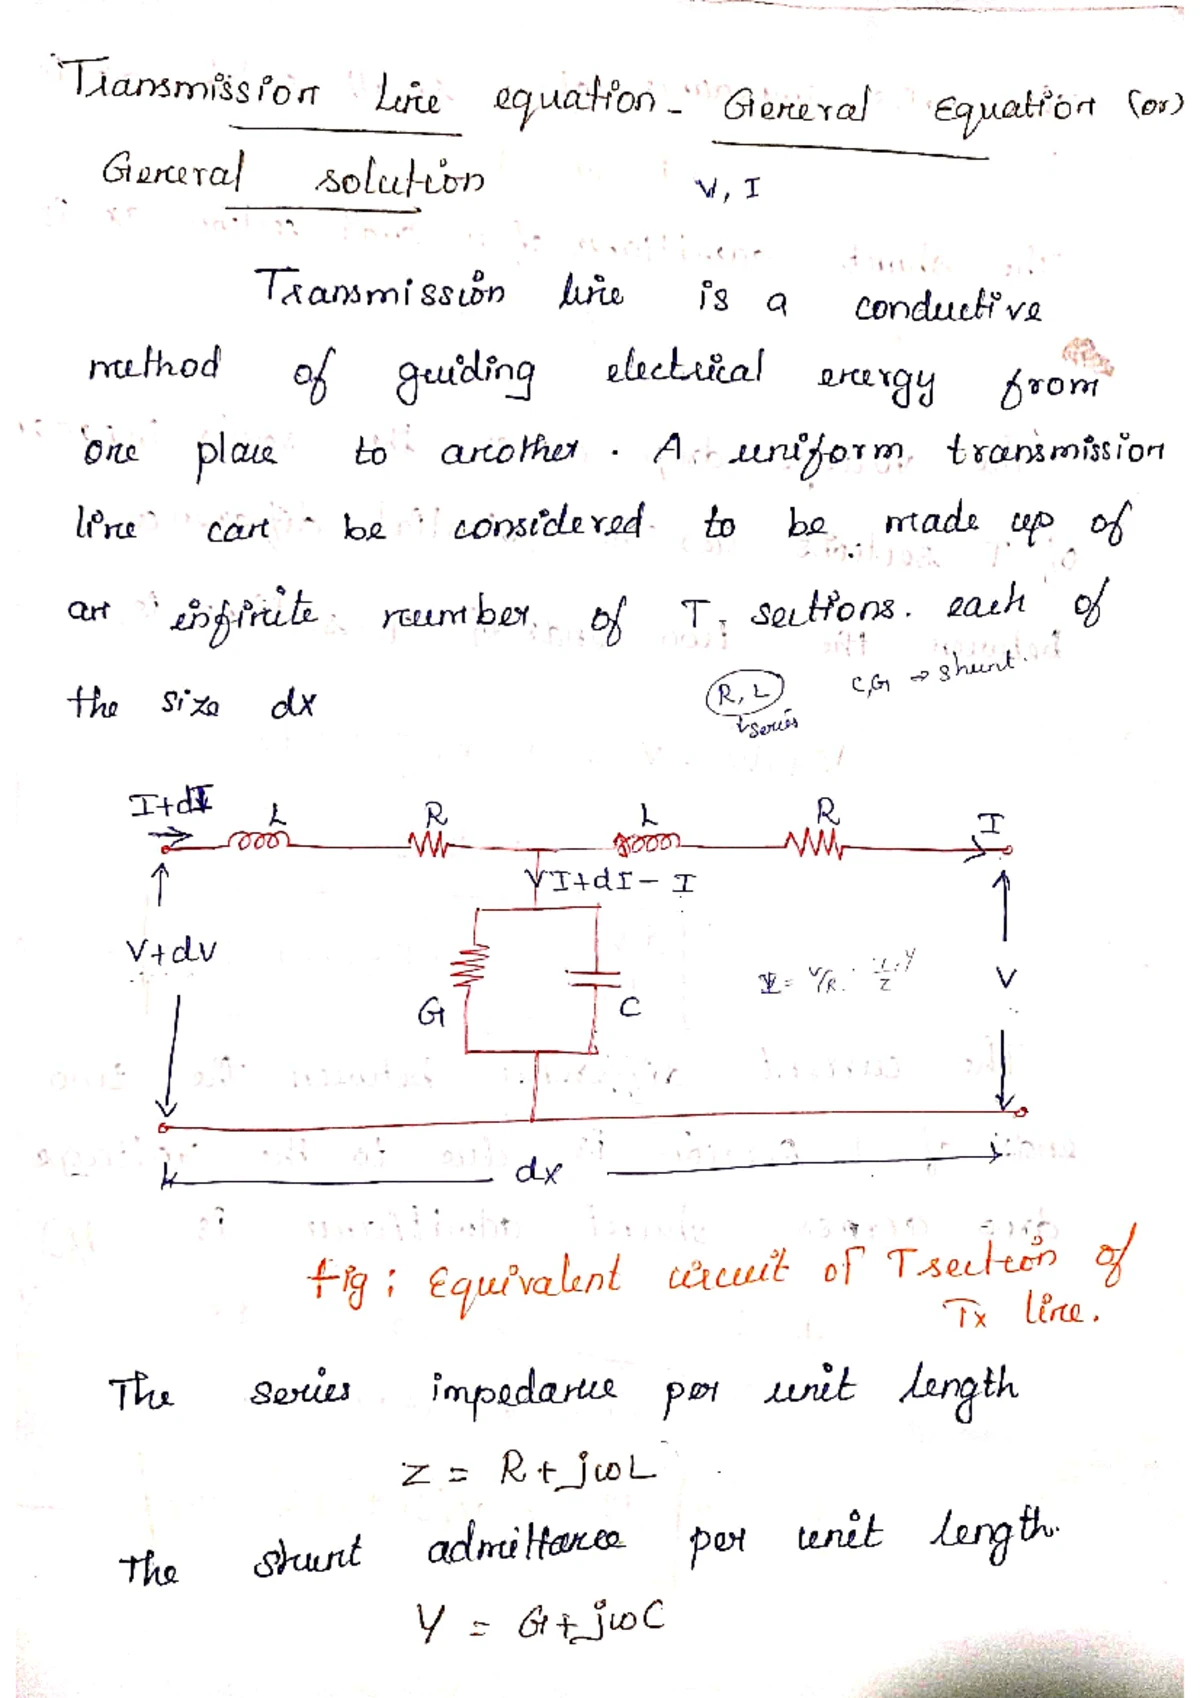 Transmission Line equation - General Equation (or)
General solution
V, I
Transmission line is a conductive
method of guiding electrical energy from
one place to another. A uniform transmission
line can be considered to be made up of
an infinite number of T sections. each of
the size dx
R, L
series
C,G → shunt.
I+dI
L
R
L
R
I
I+dI- I
V+dv
G
C
V
dx
fig: Equivalent circuit of T section of
Tx line.
The series impedance per unit length
Z = R+jωL
The shunt admittance per unit length.
Y = G+jωC